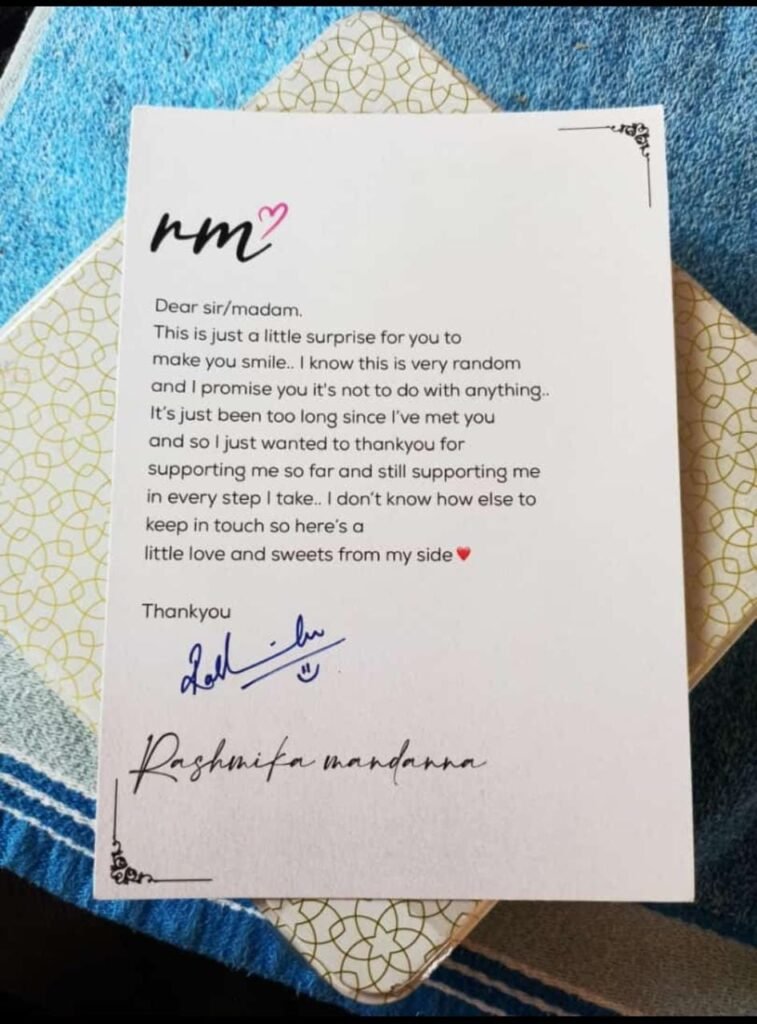 rm
Dear sir/madam.
This is just a little surprise for you to
make you smile.. I know this is very random
and I promise you it's not to do with anything..
It's just been too long since I've met you
and so I just wanted to thankyou for
supporting me so far and still supporting me
in every step I take.. I don't know how else to
keep in touch so here's a
little love and sweets from my side❤️
Thankyou
Rashmika mandanna